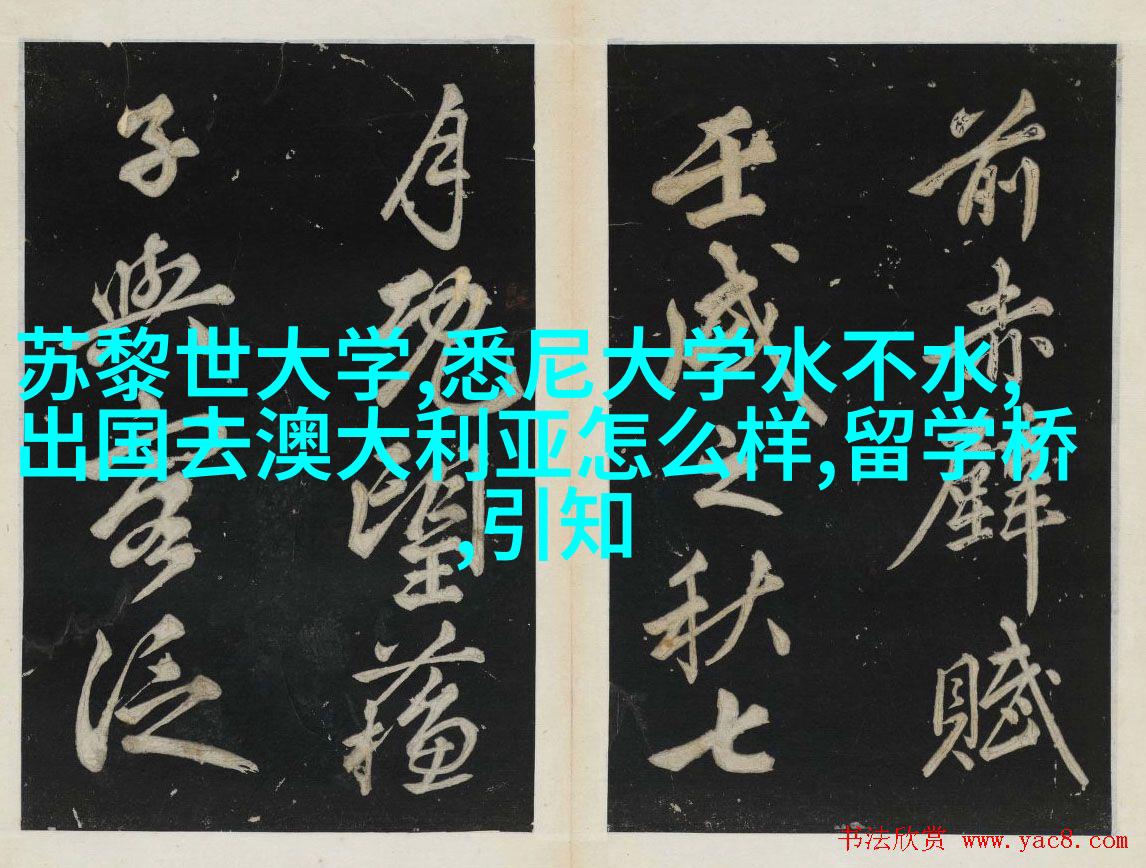 前赤壁賦
壬戌之秋七
月既望蘇
子與客泛
苏黎世大学,悉尼大学水不水,
出国去澳大利亚怎么样,留学桥
,引知
书法欣赏 www.yac8.com